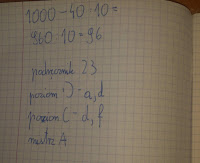 1000-40·10=
960·10=96

podręcznik 23
poziom D - a,d
poziom C - d, f
matrz A